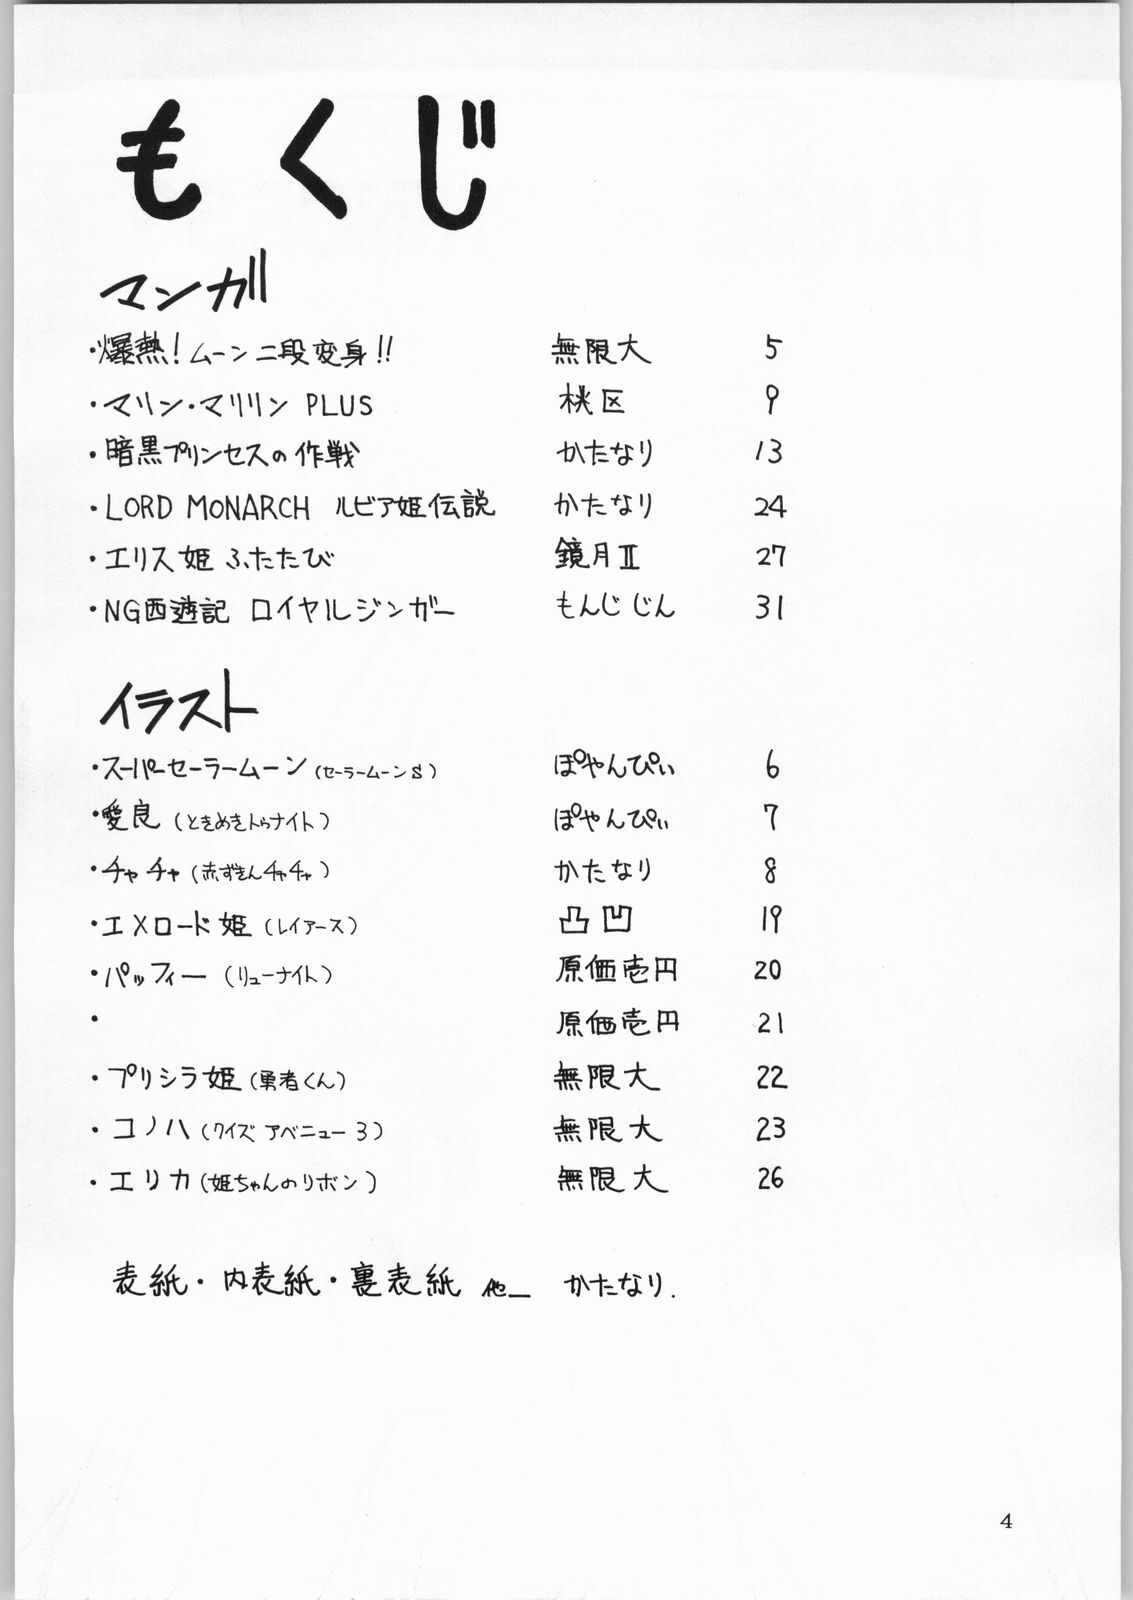 もくじ
マンガ
・爆熱!ムーン二段変身!! 無限大 5
・マリン・マリリン PLUS 桃区 9
・暗黒プリンセスの作戦 かたなり 13
・LORD MONARCH ルビア姫伝説 かたなり 24
・エリス姫 ふたたび 鏡月Ⅱ 27
・NG西遊記 ロイヤルジンガー もんじじん 31
イラスト
・スーパーセーラームーン(セーラームーンS) ぽやんぴぃ 6
・愛良(ときめきトゥナイト) ぽやんぴぃ 7
・チャチャ(赤ずきんチャチャ) かたなり 8
・エメロード姫(レイアース) 凸凹 19
・パッフィー(リューナイト) 原価壱円 20
・ 原価壱円 21
・プリシラ姫(勇者くん) 無限大 22
・コノハ(クイズアベニュー3) 無限大 23
・エリカ(姫ちゃんのリボン) 無限大 26
表紙・内表紙・裏表紙 他_ かたなり.
4